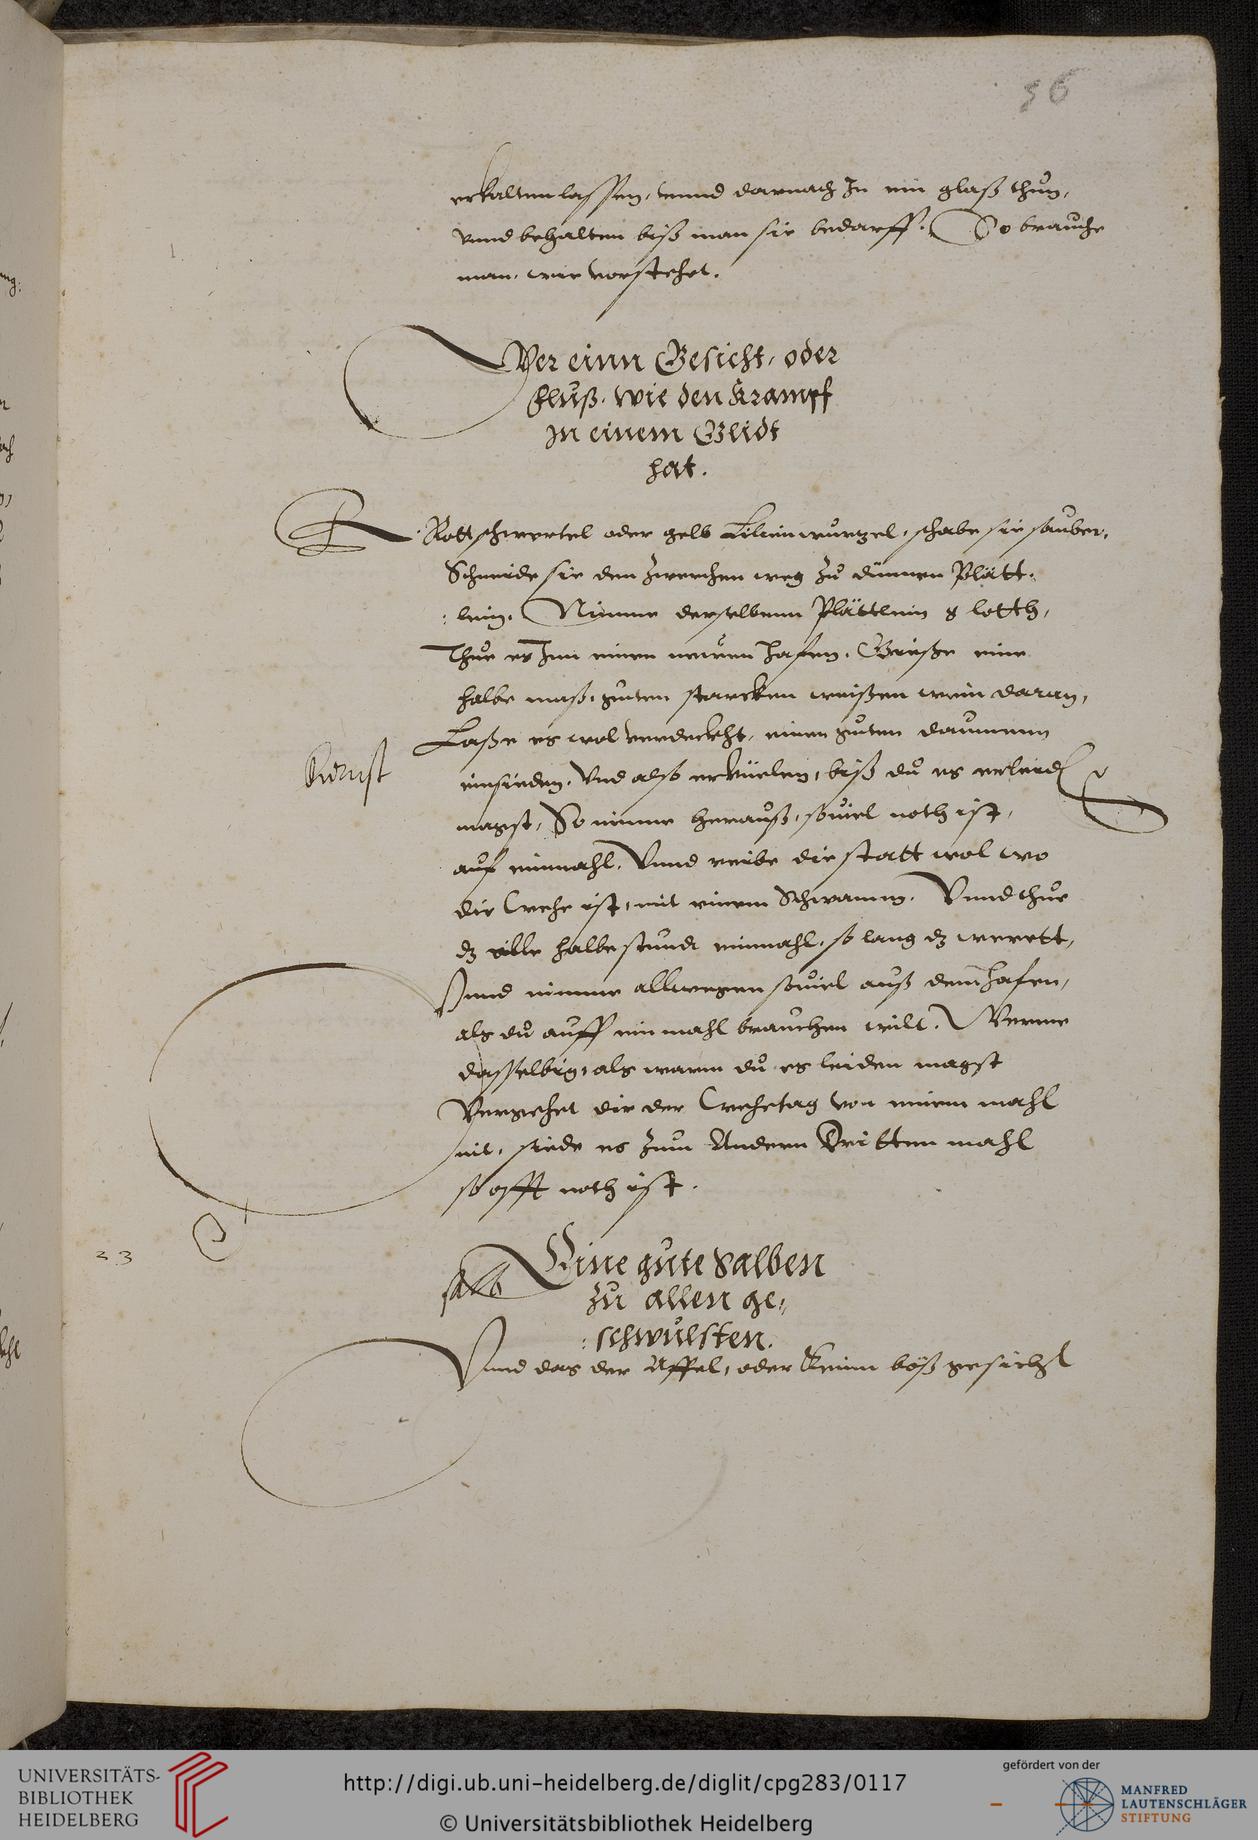 56
erkalten lassen, vnnd darnach In ein glaß thun,
vnnd behalten biß man sie bedarff. So brauche
man, wie vorstehet.
Wer einn Gesicht, oder
Fluß, wie den Krampf
In einem Glidt
hat.
Rott schwertel oder gelb Lilien wurtzel, schabe sie sauber,
Schneide sie den zwerchen weg zů dünnen Plätt-
:lein, Nimme derselbenn Plättlein 8 lotth,
Thue es Inn einen neuen hafen, Gieße eine
halbe maß, guten starcken weißen wein daran,
Laße es wol verdeckht, einen guten daumenn
einsieden, Vnd also erküelen, biß du es erleid
magst, So nimme herauß, souiel noth ist,
auf einmahl, Vnnd reibe die statt wol wo
die wehe ist, mit einem Schwamm, Vnnd thue
dz alle halbe stundt einmahl, so lang dz werett,
Vnnd nimme allwegen souiel auß dem hafen,
als du auff ein mahl brauchen wilt, Werme
dasselbig, als warm du es leiden magst
Vergehet dir der wehetag von einem mahl
nit, siede es zum Andern Dritten mahl
so offt noth ist.
23
Eine gute Salben
salb
zu allen ge-
:schwulsten.
Vnnd das der Affel, oder keinn böß gesicht
UNIVERSITÄTS-
BIBLIOTHEK
HEIDELBERG
http://digi.ub.uni-heidelberg.de/diglit/cpg283/0117
© Universitätsbibliothek Heidelberg
gefördert von der
MANFRED
LAUTENSCHLÄGER
STIFTUNG